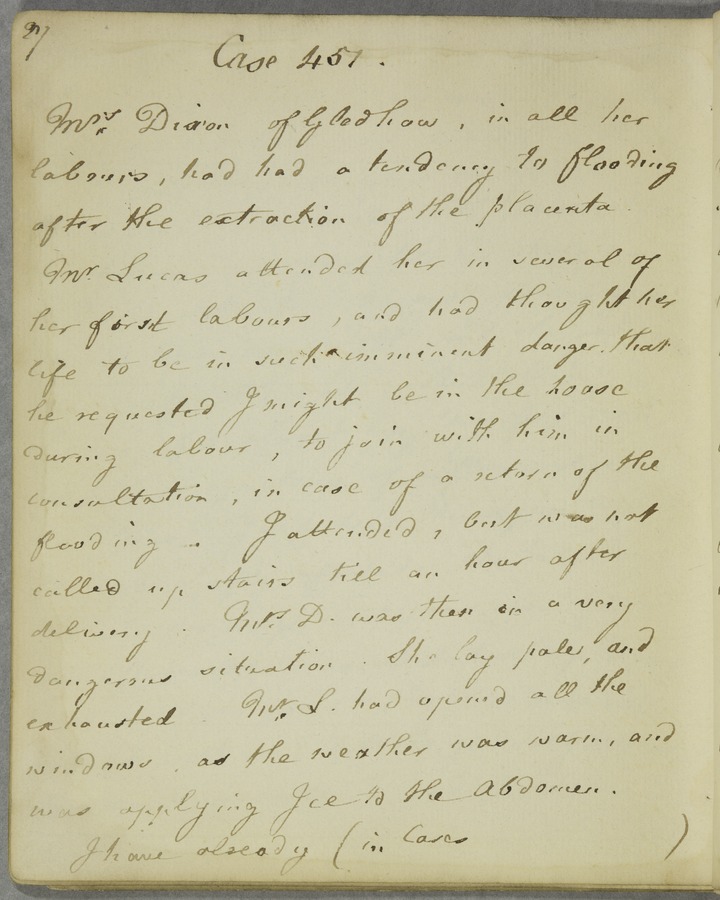 27
Case 451.
Mrs. Dixon of Gledhow, in all her
labours, had had a tendency to flooding
after the extraction of the placenta
Mr. Lucas attended her in several of
her first labours, and had thought her
life to be in such imminent danger. that
he requested I might be in the house
during labour, to join with him in
consultation, in case of a return of the
flooding. I attended, but was not
called up stairs till an hour after
delivery. Mrs. D. was then in a very
dangerous situation. She lay pale, and
exhausted. Mr. L. had opend all the
windows, as the weather was warm, and
was applying Ice to the Abdomen.
I have already (in Cases )